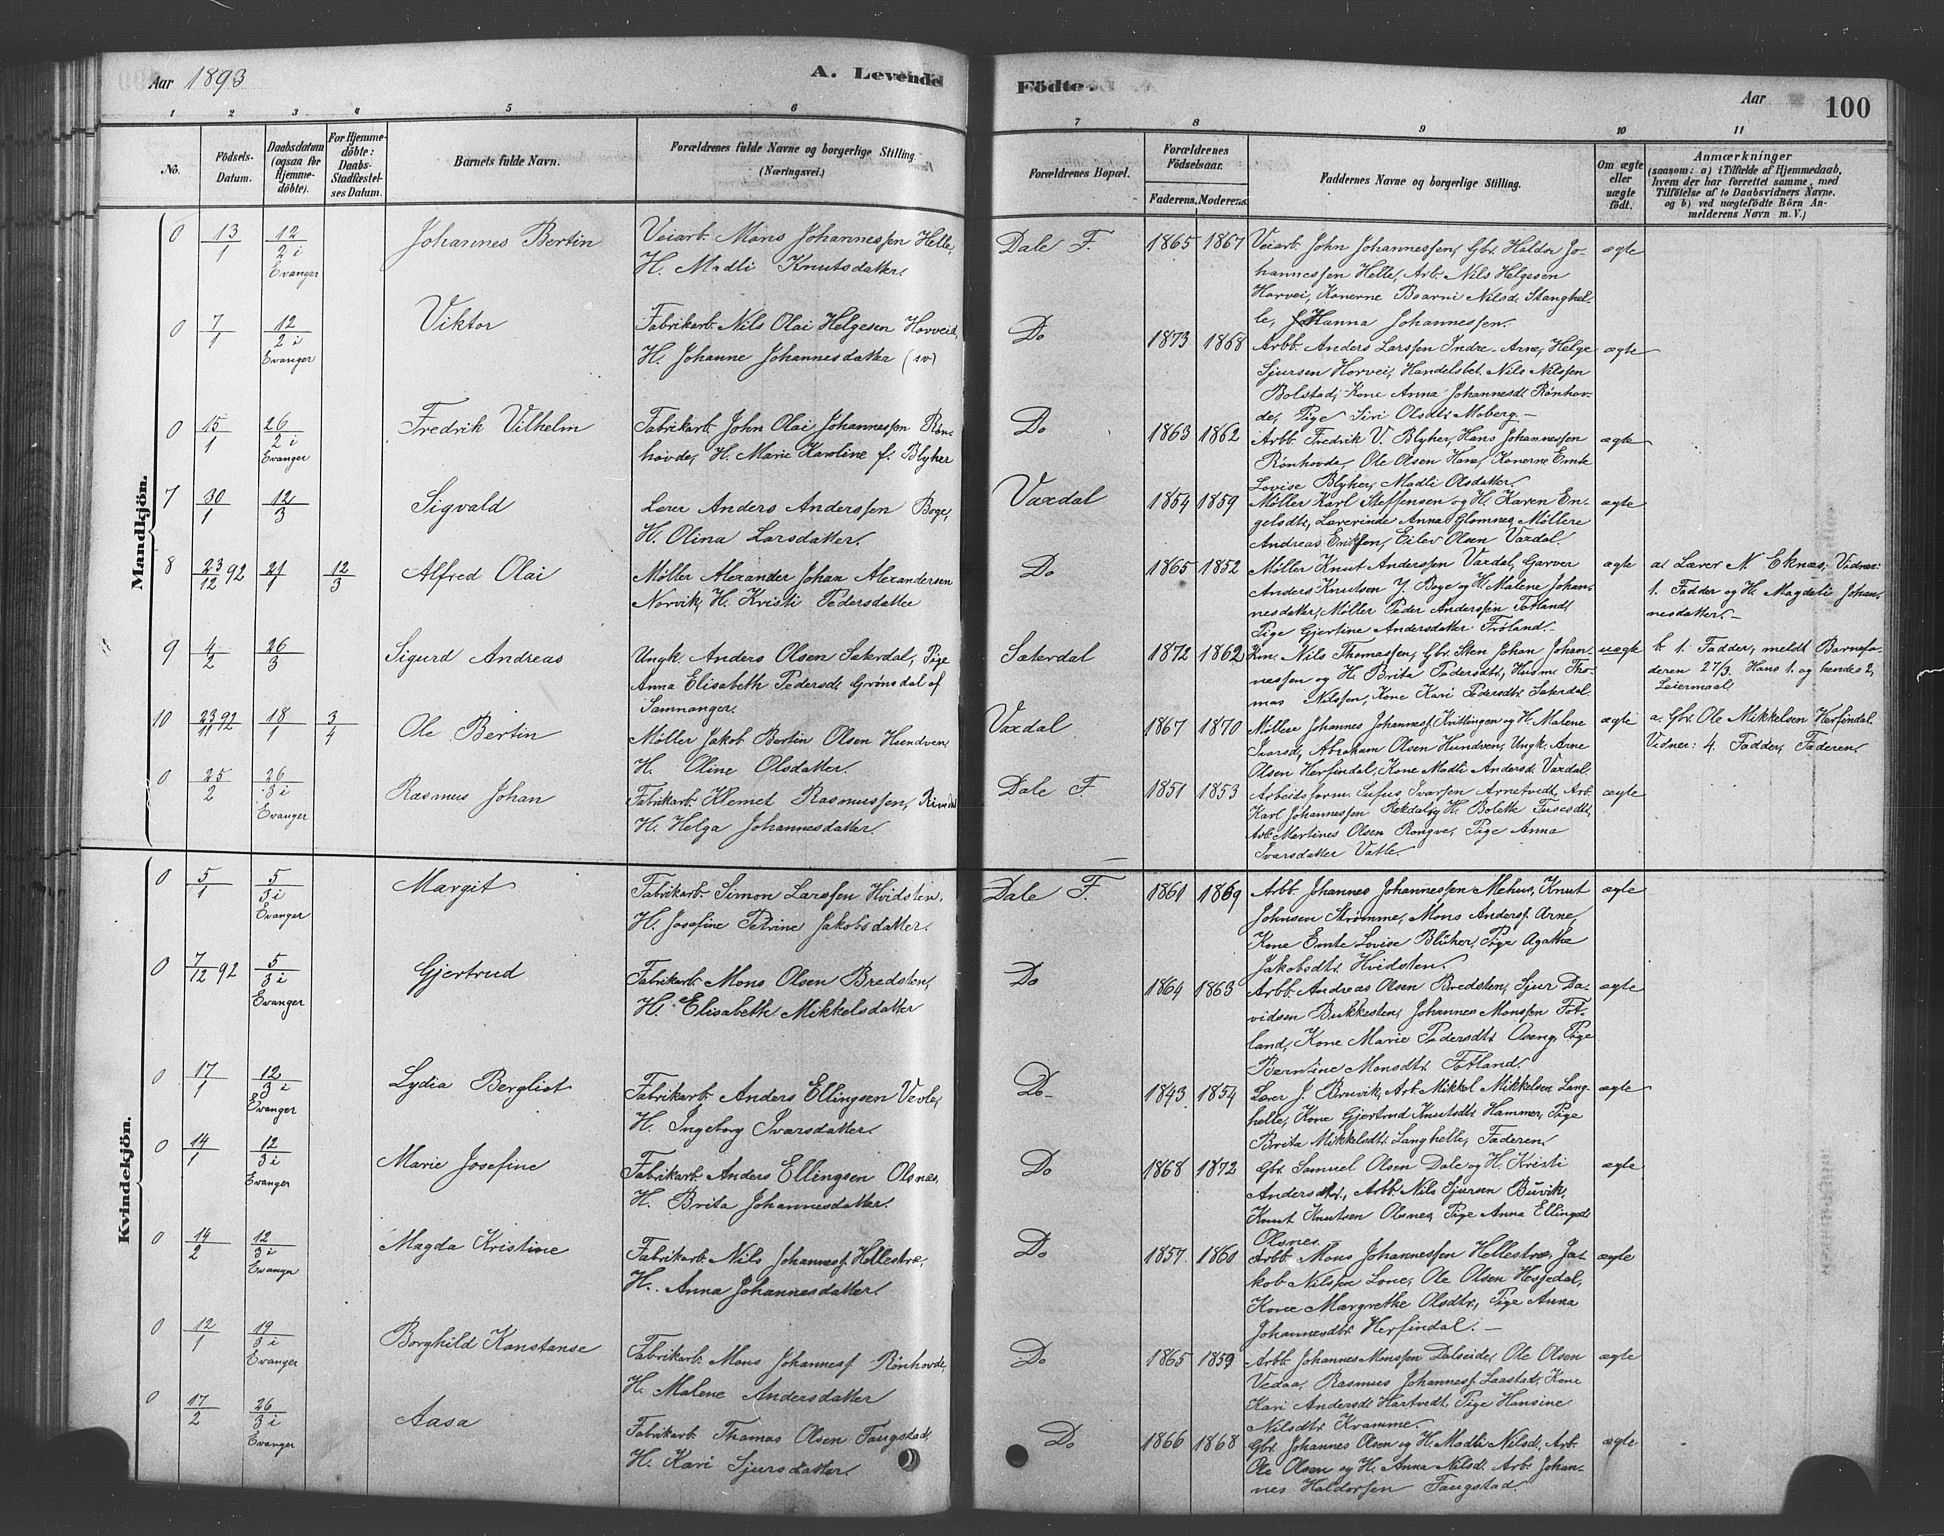 Aar 1893
A. Levende
Födte.
Aar
100
1 2 3 4 5 6 7 8 9 10 11
No.
Födsels-
Datum.
Daabsdatum
(ogsaa for
Hjemme-
döbte).
For Hjemme-
döbte:
Daabs-
Stadfæstel-
ses Datum.
Barnets fulde Navn.
Forældrenes fulde Navne og borgerlige Stilling
(Næringsvei.)
Forældrenes Bopæl.
Forældrenes
Födselsaar.
Faderens. Moderens.
Faddernes Navne og borgerlige Stilling.
Om ægte
eller
uægte
födt.
Anmærkninger
(saasom: a) i Tilfælde af Hjemmedaab,
hvem der har forrettet samme, med
Tilföielse af to Daabsvidners Navne.
og b) ved uægtefödte Börn An-
melderens Navn m. V.)
Mandkjön.
0 13/1 12/2 i Evanger
Johannes Bertin
Veiarb. Mons Johannessen Helle,
H. Madli Knutsdatter.
Dale F.
1865 1867
Veiarb. John Johannessen, Gbr. Haldor Jo-
hannessen Helle, Arb. Nils Helgesen
Horvei, Konerne Baarni Nilsd. Stanghel-
le, Hanna Johannessen.
ægte
0 7/1 12/2 i Evanger
Viktor
Fabrikarb. Nils Olai Helgesen Horveid,
H. Johanne Johannesdatter (sv)
Do
1873 1868
Arbb. Anders Larssen Indre-Arne, Helge
Sjursen Horvei, Handelsbet. Nils Nilssen
Bolstad, Kone Anna Johannesdt. Rønhov-
de, Pige Siri Olsdtr. Moberg.-
ægte
0 15/1 26/2 i Evanger
Fredrik Vilhelm
Fabrikarb. John Olai Johannessen Røn-
hovde, H. Marie Karoline f. Blyher
Do
1863 1862
Arbb. Fredrik V. Blyher, Hans Johannessen
Rønhovde, Ole Olsen Hane, Konerne Emte
Lovise Blyher, Madli Olsdatter.
ægte
7 30/1 12/3
Sigvald
Lærer Anders Anderssen Boge,
H. Olina Larsdatter.
Vaxdal
1854 1859
Møller Karl Steffensen og H. Karen En-
gelsdtr, Lærerinde Anna Glomnes, Møllere
Andreas Eriksen, Eilev Olsen Vaxdal.
ægte
8 23/12 92 21/1 12/3
Alfred Olai
Møller Alexander Johan Alexandersen
Norvik, H. Kristi Pedersdatter
Do
1865 1852
Møller Knut Anderssen Vaxdal, Garver
Anders Knutsen Y. Boge og H. Malene Johan-
nesdatter, Møller Peder Anderssen Totland,
Pige Gjertine Andersdatter Frøland.-
ægte
a. Lærer N. Eknæs, Vidner:
1. Fadder og H. Magdeli Johan-
nesdatter.-
9 4/2 26/3
Sigurd Andreas
Ungk. Anders Olsen Sakerdal, Pige
Anna Elisabeth Pedersdt. Grønsdal af
Samnanger.
Sakerdal
1872 1862
Km. Nils Thomassen, Gbr. Sten Johan Johan-
nessen og H. Brita Pedersdtr, Husm. Tho-
mas Nilssen, Kone Kari Pedersdtr. Sakerdal
uægte
b. 1. Fadder, meldt Barnefa-
deren 27/3. Hans 1. og hendes 2,
Leiermaal.
10 23/11 92 18/1 3/4
Ole Bertin
Møller Jakob Bertin Olsen Hundven,
H. Oline Olsdatter.
Vaxdal
1867 1870
Møller Johannes Johannesf. Kvitlingen og H. Malene
Ivarsd, Abraham Olsen Hundven, Ungk. Arne
Olsen Herfindal, Kone Madli Andersd. Vaxdal.
ægte
a. Gbr. Ole Mikkelsen Herfindal.
Vidner: 4. Fadder, Faderen.
0 25/2 26/3 i Evanger
Rasmus Johan
Fabrikarb. Klemet Rasmussen,
H. Helga Johannesdatter.
Dale F.
1851 1853
Arbeidsform. Sufus Ivarsen Arnetvedt, Arb
Karl Johannessen Rekdal og H. Bolette Tusesdtr,
Arb. Martines Olsen Rongve, Pige Anna
Ivarsdatter Vatle.
ægte
Kvindekjön.
0 5/1 5/3 i Evanger
Margit
Fabrikarb. Simon Larssen Hvidsten,
H. Josefine Petrine Jakobsdatter.
Dale F.
1861 1869
Arbb. Johannes Johannessen Mehus, Knut
Johnsen Strømme, Mons Andersf. Arne,
Kone Emte Lovise Blüher, Pige Agathe
Jakobsdtr. Hvidsten.
ægte
0 7/12 92 5/3 i Evanger
Gjertrud
Fabrikarb. Mons Olsen Bredsten,
H. Elisabeth Mikkelsdatter
Do
1864 1863
Arbb. Andreas Olsen Bredsten, Sjur Da-
vidsen Bukkesten, Johannes Monssen Fot-
land, Kone Marie Pedersdtr. Oseng, Pige
Berntine Monsdtr. Fotland.
ægte
0 17/1 12/3 i Evanger
Lydia Bergliot
Fabrikarb. Anders Ellingsen Vevle,
H. Ingeborg Ivarsdatter.
Do
1843 1854
Lærer J. Bruvik, Arb. Mikkel Mikkelsen Lang-
helle, Kone Gjertrud Knutsdtr Hammer, Pige
Brita Mikkelsdtr. Langhelle, Faderen.
ægte
0 14/1 12/3 i Evanger
Marie Josefine
Fabrikarb. Anders Ellingsen Olsnes,
H. Brita Johannesdatter.
Do
1868 1872
Gbr. Samuel Olsen Dale og H. Kristi
Andersdtr., Arbb. Nils Sjursen Büvik,
Knut Knutsen Olsnes, Pige Anna Ellingsd.
Olsnes.-
ægte
0 14/2 12/3 i Evanger
Magda Kristine
Fabrikarb. Nils Johannesf. Hellestræ,
H. Anna Johannesdatter.
Do
1857 1860
Arbb. Mons Johannessen Hellestræ, Ja-
kob Nilssen Lone, Ole Olsen Hesjedal,
Kone Margrethe Olsdtr., Pige Anna
Johannesdtr. Herfindal.-
ægte
0 12/1 19/3 i Evanger
Borghild Konstanse
Fabrikarb. Mons Johannesf. Rønhovde,
H. Malene Andersdatter
Do
1865 1859
Arbb. Johannes Monssen Dalseide, Ole Olsen
Vedaa, Rasmus Johannesf. Laastad, Kone
Kari Andersdt Hartvedt, Pige Hansine
Nilsdtr. Kvamme.
ægte
0 17/2 26/3 i Evanger
Aasa
Fabrikarb. Thomas Olsen Faugstad,
H. Kari Sjursdatter.
Do
1866 1868
Gbr. Johannes Olsen og H. Madli Nilsd. Arb.
Ole Olsen og H. Anna Nilsd. Arb. Johan-
nes Haldorsen Faugstad.
ægte